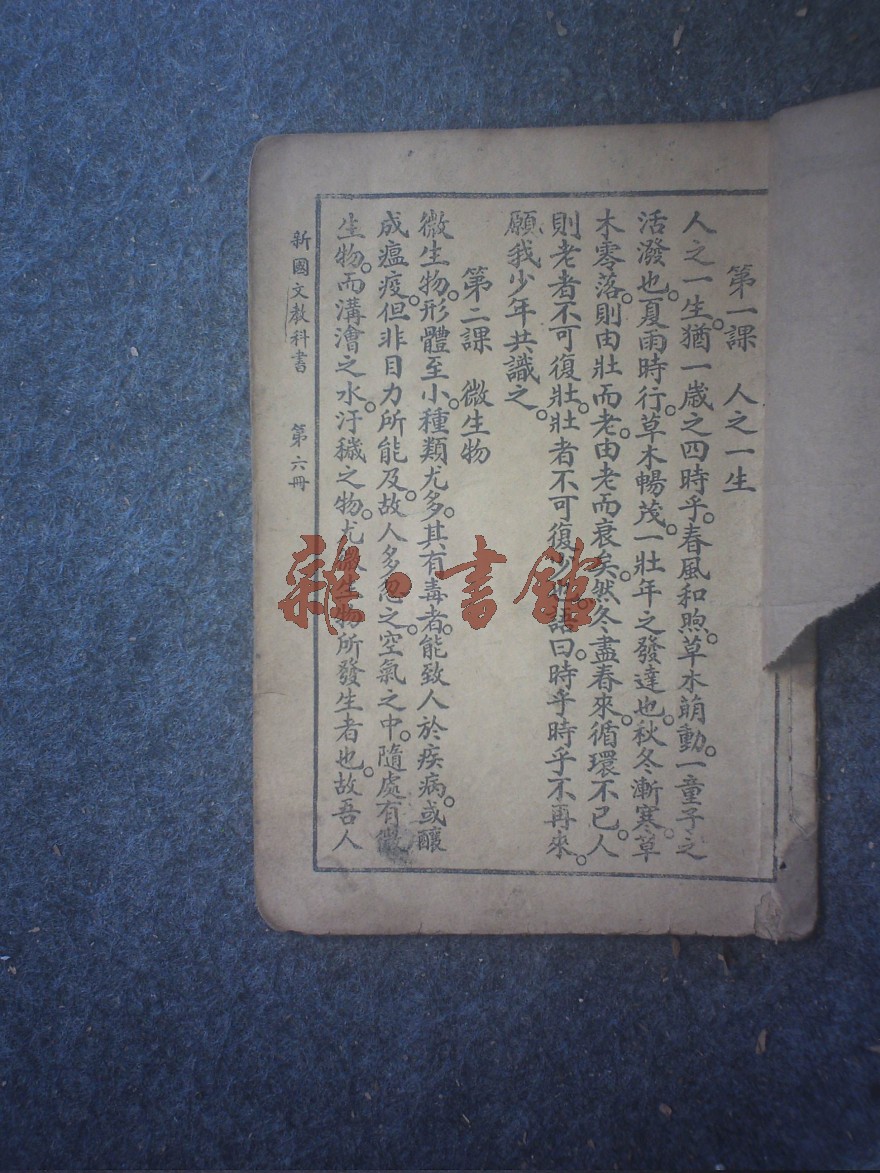 第一課　人之一生
人之一生。猶一歲之四時乎。春風和煦。草木萌動。一童子之
活潑也。夏雨時行。草木暢茂。一壯年之發達也。秋冬漸寒。草
木零落。則由壯而老。由老而衰矣。然冬盡春來。循環不已。人
則老者不可復壯。壯者不可復少。語曰。時乎時乎不再來。
願我少年共識之。
第二課　微生物
微生物。形體至小。種類尤多。其有毒者。能致人於疾病。或釀
成瘟疫。但非目力所能及。故人多忽之。空氣之中。隨處有微
生物。而溝澮之水。汙穢之物。尤微生物所發生者也。故吾人
新國文教科書　第六冊
雜·書館